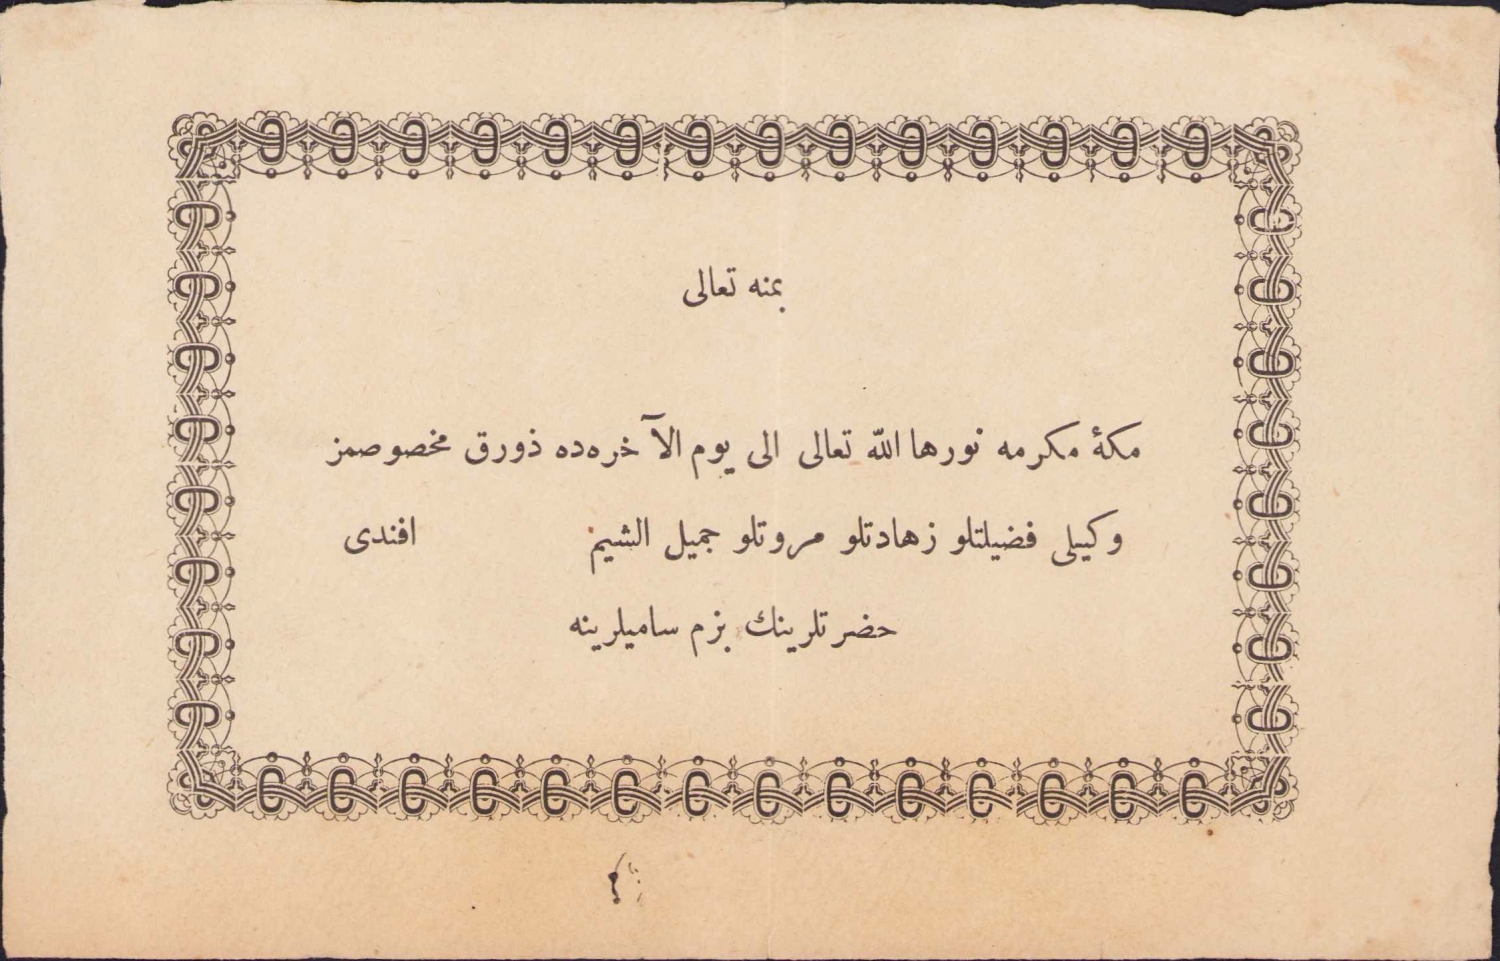 بمنه تعالى
مكۀ مكرمه نورها الله تعالى الى يوم الآخره‌ده ذورق مخصوصمز
وكيلى فضيلتلو زهادتلو مروتلو جميل الشيم افندى
حضرتلرينك بزم ساميلرينه